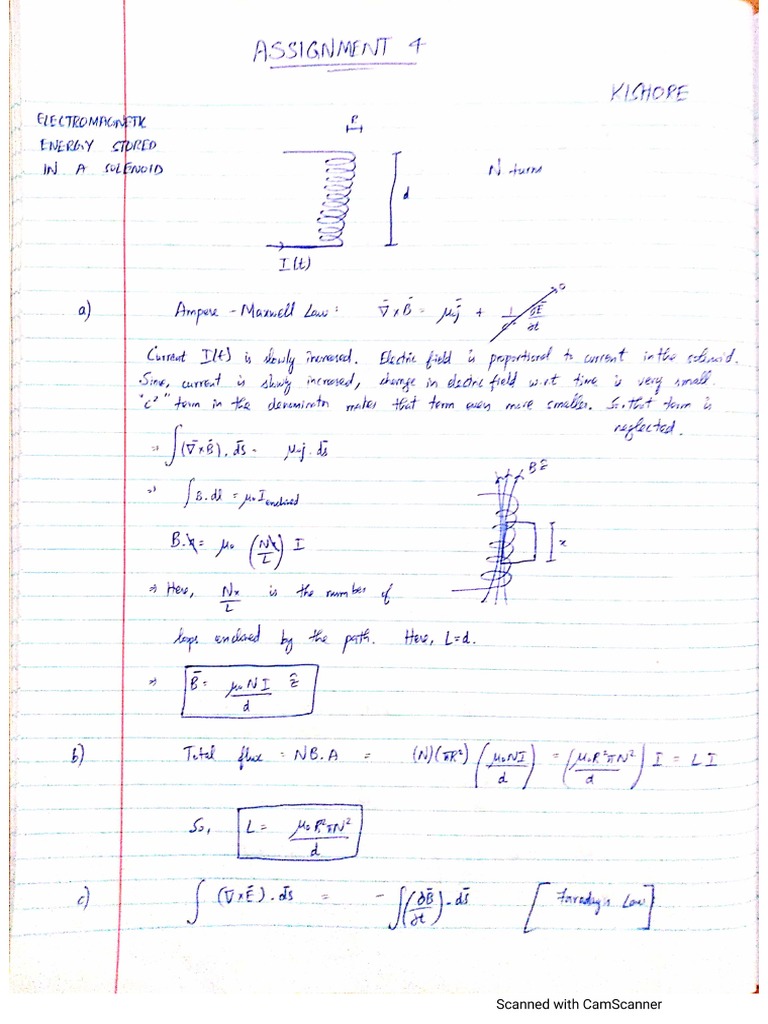 ASSIGNMENT 4
KISHORE
ELECTROMAGNETIC
ENERGY STORED
IN A SOLENOID
R
d
N turns
I(t)
a) Ampere - Maxwell Law : ∇̄ x B̄ = μ₀j̄ + 1/c² ∂Ē/∂t → 0
Current I(t) is slowly increased. Electric field is proportional to current in the solenoid.
Since, current is slowly increased, change in electric field w.r.t time is very small.
"c²" term in the denominator makes that term even more smaller. So, that term is
neglected.
⇒ ∫(∇̄ x B̄). ds̄ = μ₀j̄. ds̄
⇒ ∫ B. dl = μ₀ I enclosed
B ẑ
B.x = μ₀ (Nx/L) I
x
⇒ Here, Nx/L is the number of
loops enclosed by the path. Here, L=d.
⇒ B̄ = μ₀NI/d ẑ
b) Total flux = NB.A = (N)(πR²)(μ₀NI/d) = (μ₀R²πN²/d) I = LI
So, L = μ₀R²πN²/d
c) ∫(∇̄ x Ē). ds̄ = - ∫(∂B̄/∂t). ds̄ [Faraday's Law]
Scanned with CamScanner